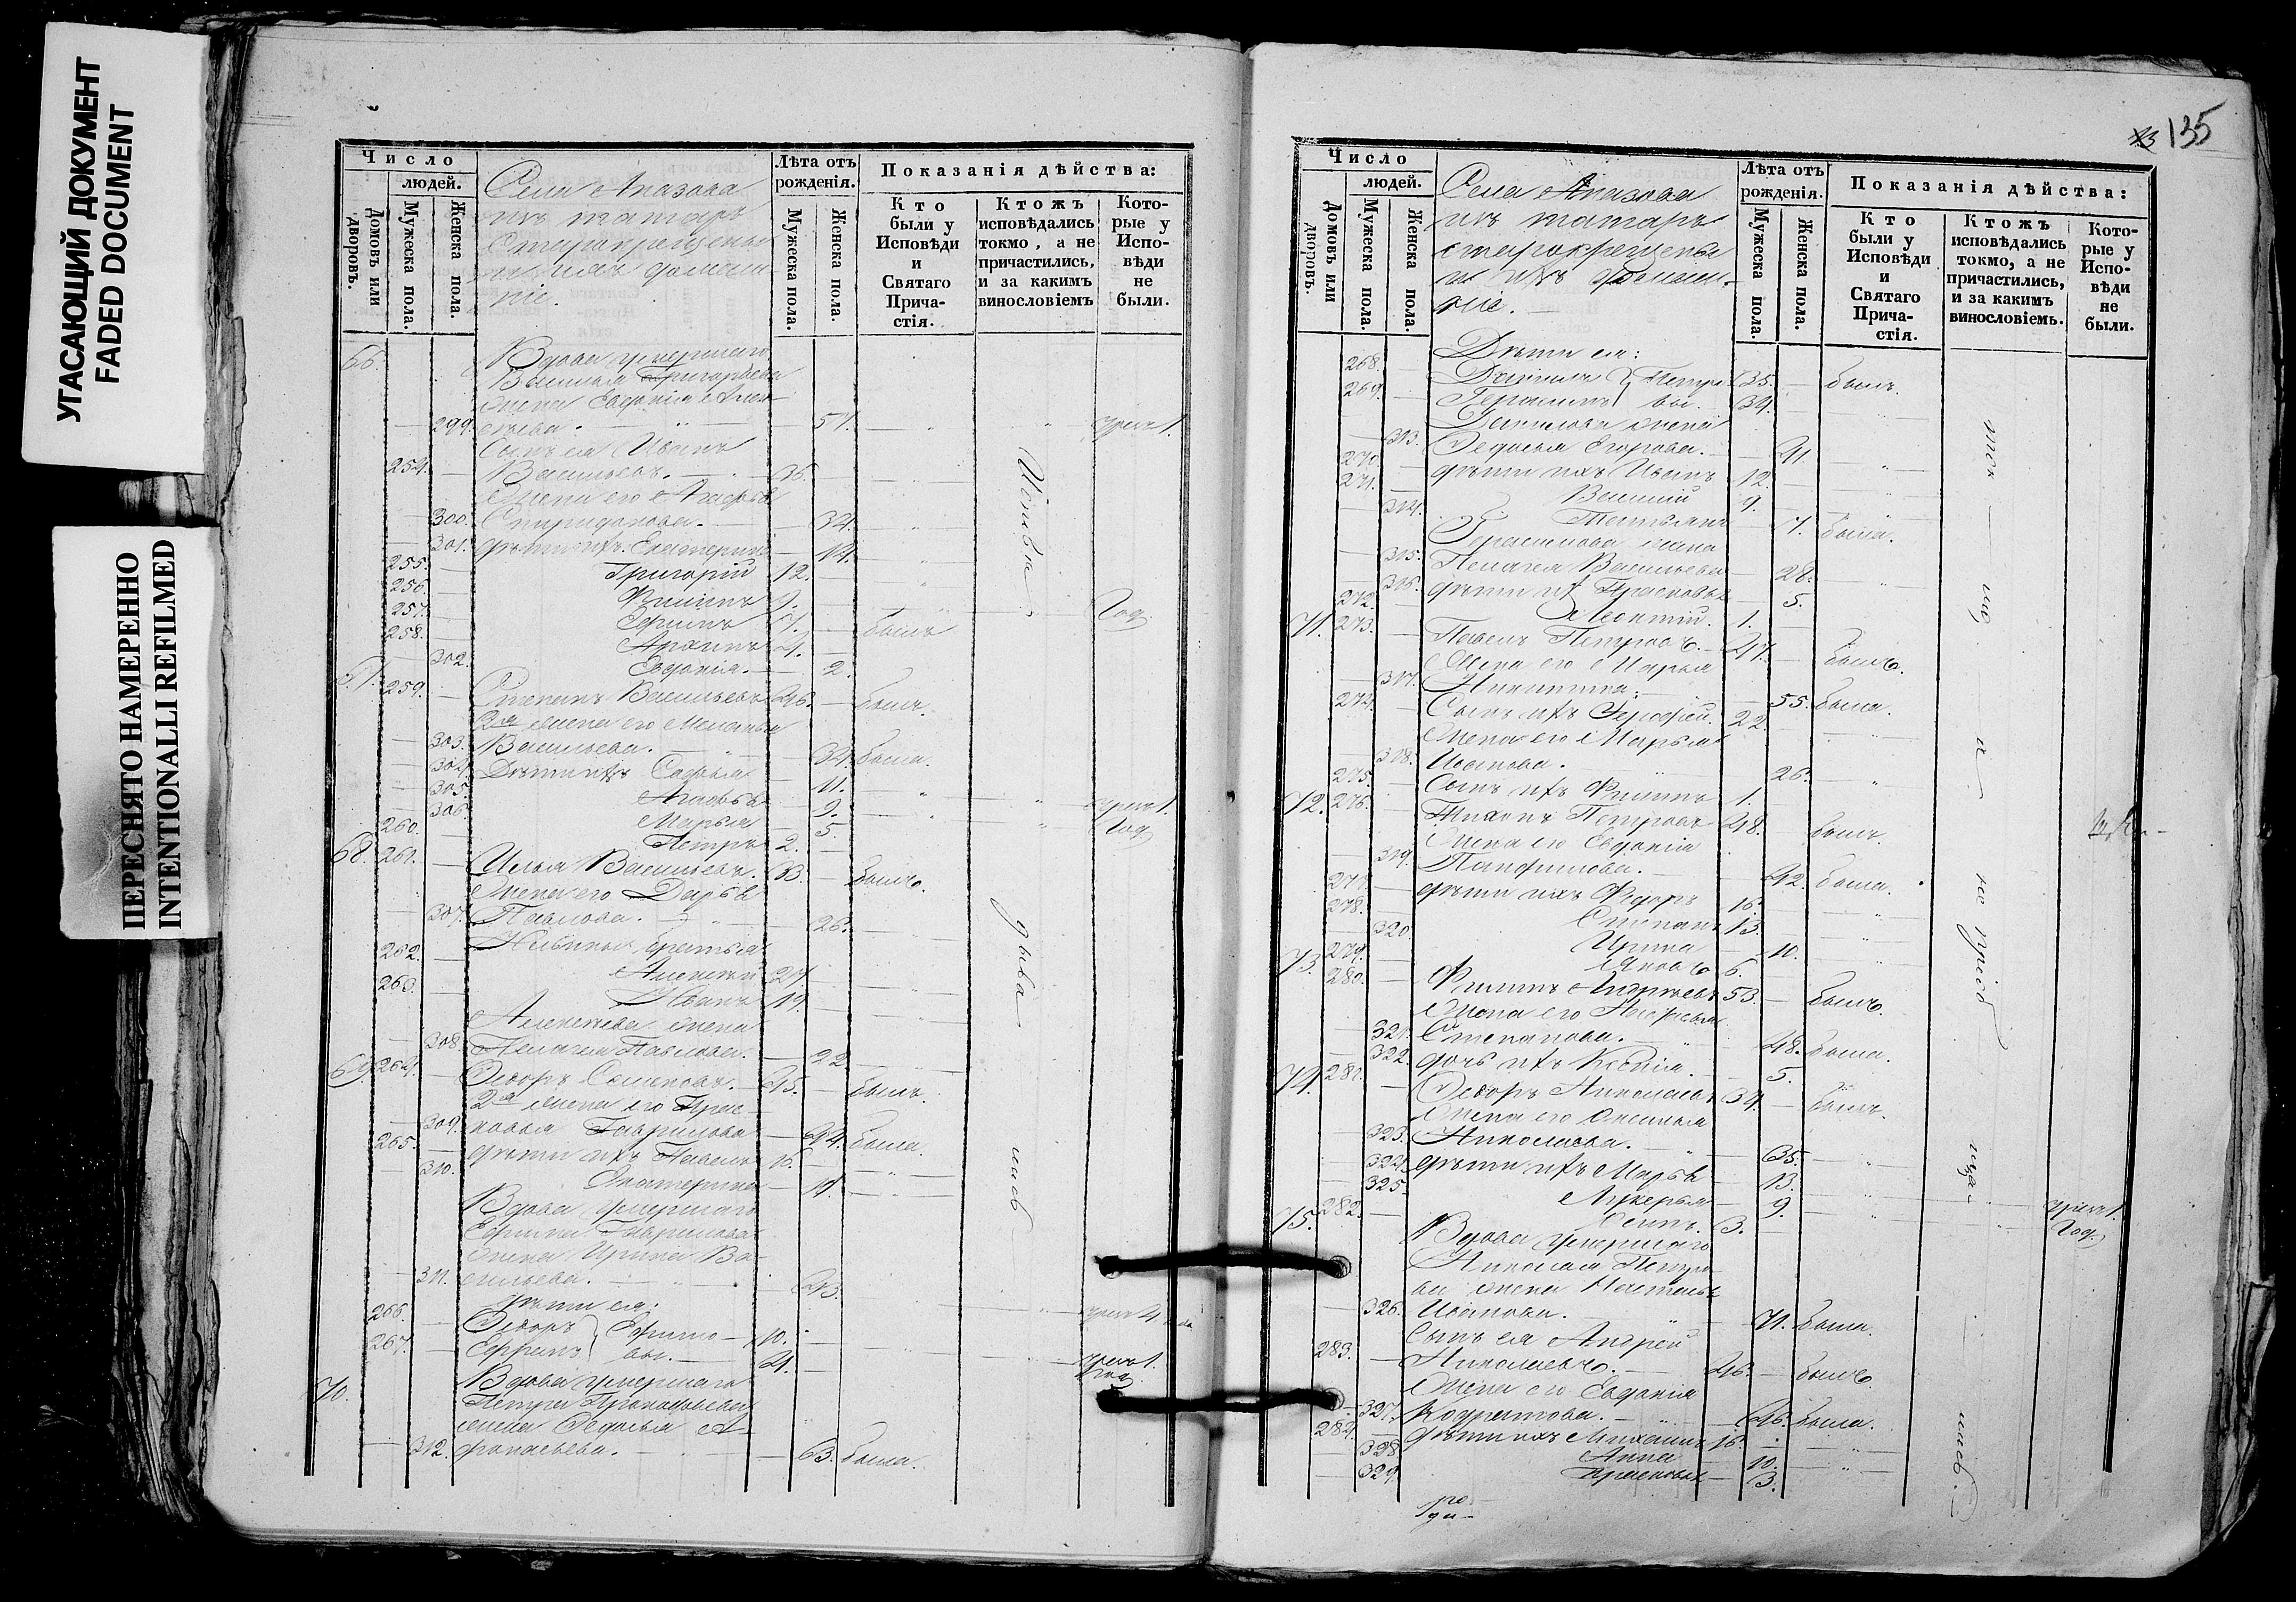 УГАСАЮЩИЙ ДОКУМЕНТ
FADED DOCUMENT
ПЕРЕСНЯТО НАМЕРЕННО
INTENTIONALLI REFILMED
Число
людей.
Домовъ или дворовъ.
Мужеска пола.
Женска пола.
Села Апазова
изъ татаръ
Старокрещены
и ихъ домаш
ніе.
Лѣта отъ рожденія.
Мужеска пола.
Женска пола.
Показанія дѣйства:
Кто были у Исповѣди и Святаго Прича-стія.
Ктожъ исповѣдались токмо, а не причастились, и за какимъ винословіемъ
Кото-рые у Испо-вѣди не были.
66. Вдова умершаго
Василья Григорьева
жена Евдокія Алек
299. сѣева. 57.
Сынъ ея Иванъ
254. Васильевъ. 35.
Жена его Агафья
300. Спиридонова. 34.
301. дѣти ихъ Екатерина 14.
255. Григорій 12.
256. Филипъ 9.
257. Ефимъ 7. былъ
258. Архипъ 4.
302. Евдокія. 2.
67. 259. Степанъ Васильевъ 46. былъ.
2я жена его Меланья
303. Васильева. 34 была.
304. Дѣти ихъ Софья 11.
305. 9.
306. Марья 5.
260. Петръ 2.
68. 261. Илья Васильевъ. 33. былъ.
Жена его Дарья
307. Павлова. 26.
262. Ильины братья
Алексѣй 27.
263. Иванъ 19.
Алексѣева жена
308. Пелагея Павлова. 22
69. 264. Ѳедоръ Семеновъ. 45. былъ.
2я жена его Прас-
309. ковья Гаврилова 44. была.
265. дѣти ихъ Павелъ 16.
310. Екатерина 11.
Вдова умершаго
Ефима Гаврилова
жена Ирина Ва-
311. сильева. 43.
дѣти ея:
266. Ѳедоръ Ефимо- 10.
267. Ефремъ вы. 4.
70. Вдова умершаго
Петра Прокопьева
жена Ѳедосья А-
312. фанасьева. 63. была.
135
Число
людей.
Домовъ или дворовъ.
Мужеска пола.
Женска пола.
Села Апазова
изъ татаръ
старокрещены
и ихъ домаш-
ніе.
Лѣта отъ рожденія.
Мужеска пола.
Женска пола.
Показанія дѣйства:
Кто были у Исповѣди и Святаго Прича-стія.
Ктожъ исповѣдались токмо, а не причастились, и за какимъ винословіемъ.
Кото-рые у Испо-вѣди не были.
Дѣти ея:
268. Данила Петро 35. былъ.
269. Герасимъ вы. 34.
Данилова жена
313. Ѳедосья Егорова. 41
270. дѣти ихъ Иванъ 12.
271. Василій 9.
314. Татьяна 7. была.
Герасимова жена
315. Пелагея Васильева 28.
316. дѣти ихъ Прасковья 5.
272. Леонтій. 1.
71. 273. Павелъ Петровъ. 47. былъ.
Жена его Марья
317. Никитина. 55. была.
274. Сынъ ихъ 22.
Жена его Марья
318. Иванова. 26.
275. Сынъ ихъ Филипъ 1.
72. 276. Тихонъ Петровъ 48. былъ.
Жена его Евдокія
319. Панфилова. 42. была.
277. дѣти ихъ Ѳедоръ 16.
278. Степанъ 13.
320. Ирина 10.
279. Яковъ 6.
73. 280. Филипъ Андреевъ 53. былъ.
Жена его
321. Степанова. 48. была.
322. дочь ихъ Ксенія. 5.
74. 281. Ѳедоръ Николаевъ 34. былъ.
Жена его
323. Николаева. 35.
324. дѣти ихъ Марья 13.
325. Лукерья 9.
282. 3.
75. Вдова умершаго
Николая Петро
ва жена Наталья
326. Иванова. 71. была.
Сынъ ея Андрей
283. Николаевъ. 46. былъ.
Жена его Евдокія
327. Кодратова. 46. была.
284. дѣти ихъ Михаилъ 16.
328. Анна 10.
329. Прасковья 3.